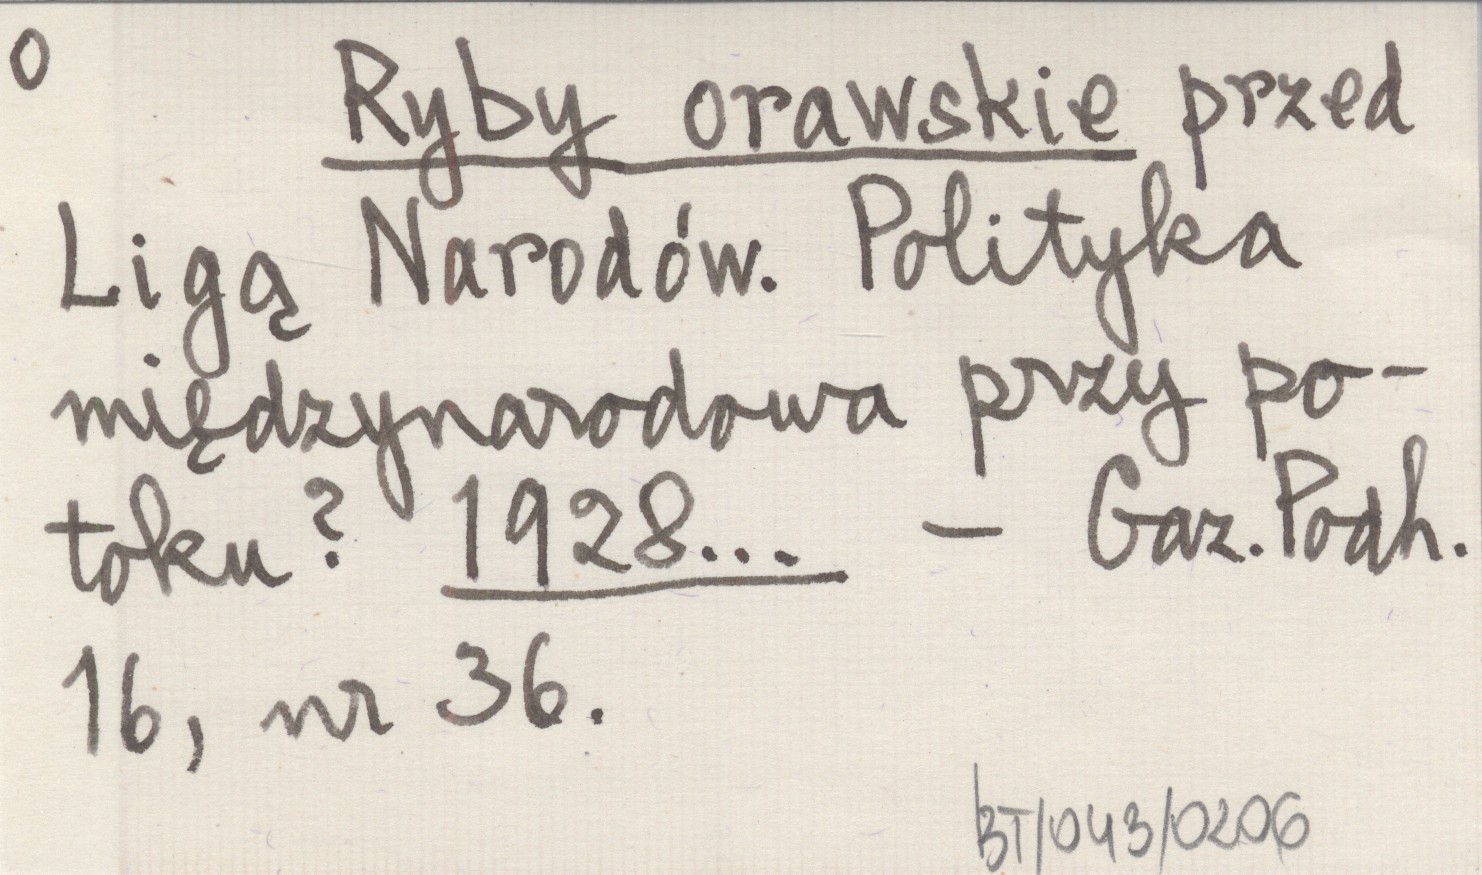 o
Ryby orawskie przed
Ligą Narodów. Polityka
międzynarodowa przy po-
toku? 1928... – Gaz. Podh.
16, nr 36.
BT/043/0206